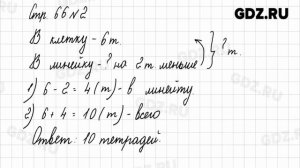 GDZ.RU
Стр. 66 № 2
В клетку - 6 т.
В линейку - ? на 2 т. меньше } ? т.
1) 6 - 2 = 4 (т) - в линейку
2) 6 + 4 = 10 (т) - всего
Ответ: 10 тетрадей.